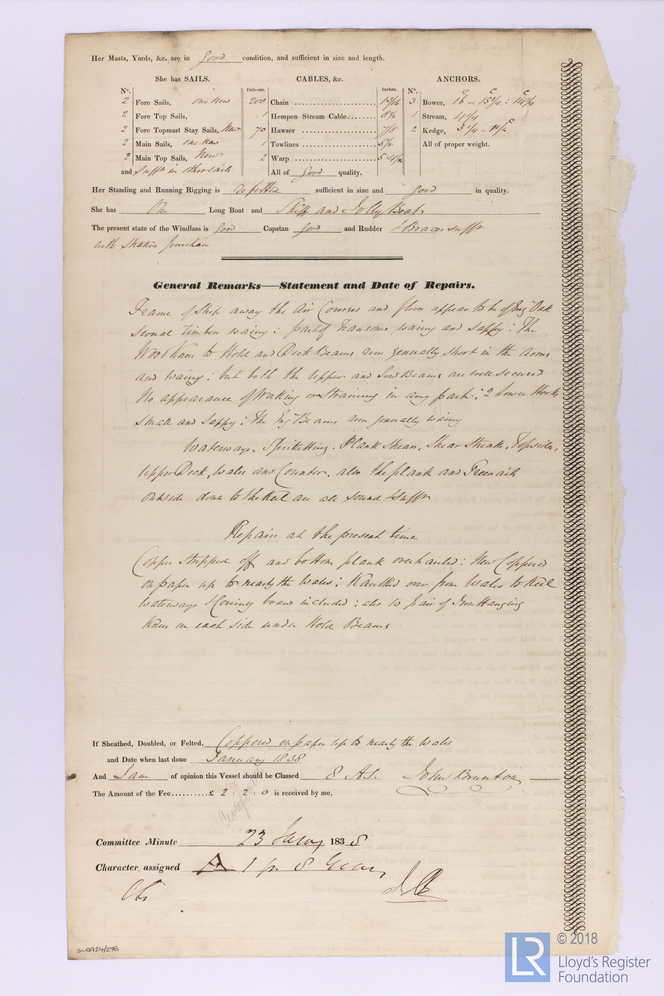 Her Masts, Yards, &c. are in good condition, and sufficient in size and length.
She has SAILS. CABLES, &c. ANCHORS.
N°. Fathoms. Inches. N°.
2 Fore Sails, one new 200 Chain 1 5/16 3 Bower,
2 Fore Top Sails, 1 Hempen Stream Cable 1 Stream,
2 Fore Topmast Stay Sails, New 70 Hawser 7/8 2 Kedge,
2 Main Sails, one new 1 Towlines All of proper weight.
2 Main Top Sails, New 2 Warp
and Suffr in other sails All of good quality.
Her Standing and Running Rigging is sufficient in size and good in quality.
She has One Long Boat and Skiff and Jolly Boat
The present state of the Windlass is good Capstan good and Rudder Braces suffr
with
General Remarks—Statement and Date of Repairs.
Frame of Ship away the Air Courses and floor appear to be of Eng Oak
several timbers waney: part of transoms waney and sappy: The
Wood Knees to Hold and Deck Beams run generally short in the arms
and waney: but both the Upper and Lower Beams are well secured
No appearance of Working or straining in any part: 2 Lower Hooks
small and sappy: The Beams run generally waney
Waterways, Spirketting, Plank Shear, Shear Streak, Topsides,
Upper Deck, Wales and Counter, also the plank and Treenails
outside down to the Keel are all sound & suffr
Repairs at the present time
Copper stripped off and bottom plank overhauled: New Coppered
on paper up to nearly the Wales: Kaulked over from Wales to Keel
waterways & included: also 10 pair of Iron Hanging
Knees on each side under Hold Beams
If Sheathed, Doubled, or Felted, Coppered on paper up to nearly the Wales
and Date when last done January 1838
And I am of opinion this Vessel should be Classed 8 A1. John Brunton
The Amount of the Fee £ 2 : 2 : 0 is received by me,
Committee Minute 23 Jany 1838
Character assigned A 1 for 8 Years
© 2018
LR
Lloyd's Register
Foundation